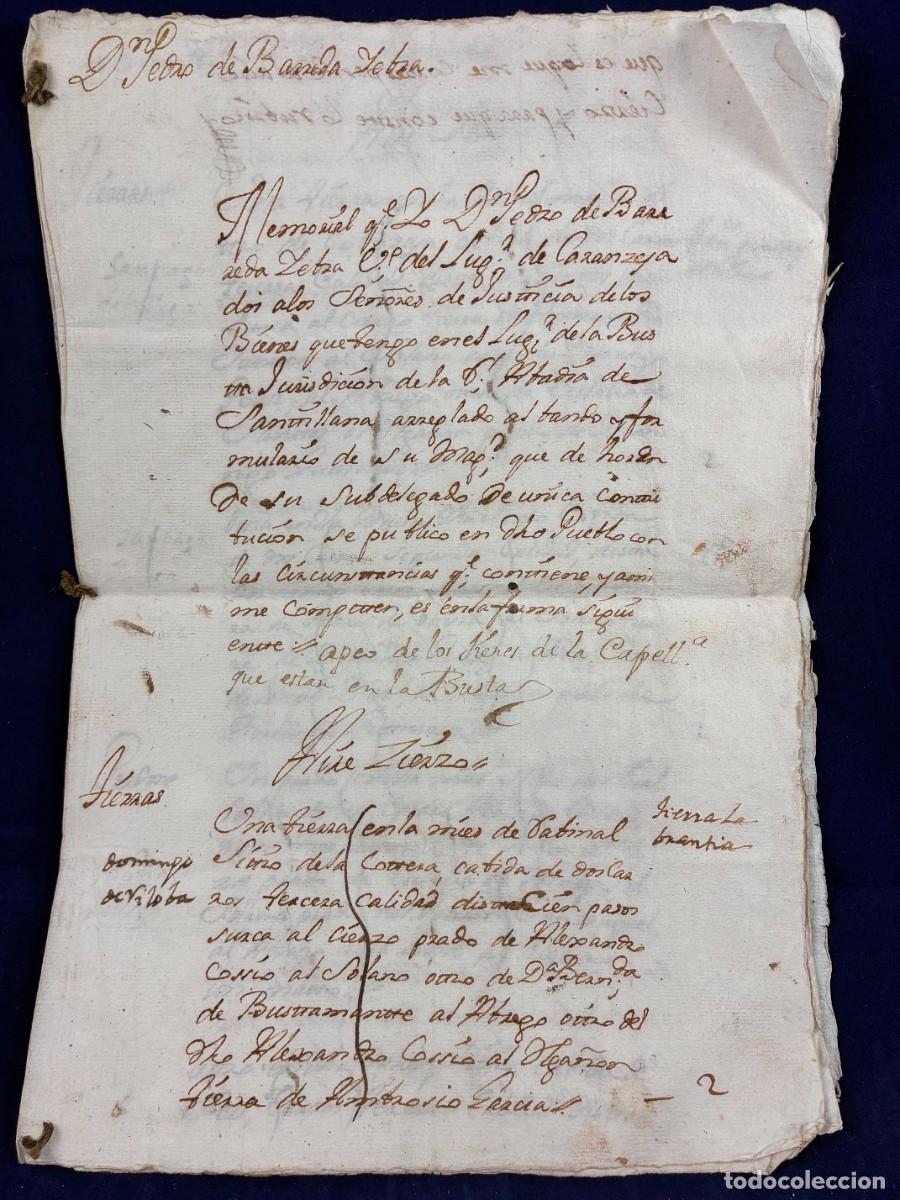 Dn Pedro de Barreda Zetra.
Memorial qe Yo Dn Pedro de Barr
reda Zetra Vº del Lugr de Caranzeja
doi a los Señores de Justicia de los
Bienes que tengo en el Lugr de la Bus
tta Jurisdicion de la Abadia de
Santtillana arreglado al bando y for
mulario de su Magd que de horden
De su subdelegado De unica Conttri
bucion se publico en dho Pueblo con
las circunstancias qe conttiene, y a mi
me competten, es en la forma sigui
entte =
apeo de los vienes de la Capella
que estan en la Busta
Aire Zierzo =
Tierras
Una tierra en la mies de
tierra la
brantia
Sitio de la Cottera, cabida de dos car
domingo
de Villoba
ros tercera calidad distta Cien pasos
surca al cierzo prado de Alexandro
Cossio al Solano ottro de Da Bernda
de Bustamantte al Abrego ottro del
dho Alexandro Cossio al Regañon
tierra de Ambrosio Garcia =
— 2
todocoleccion